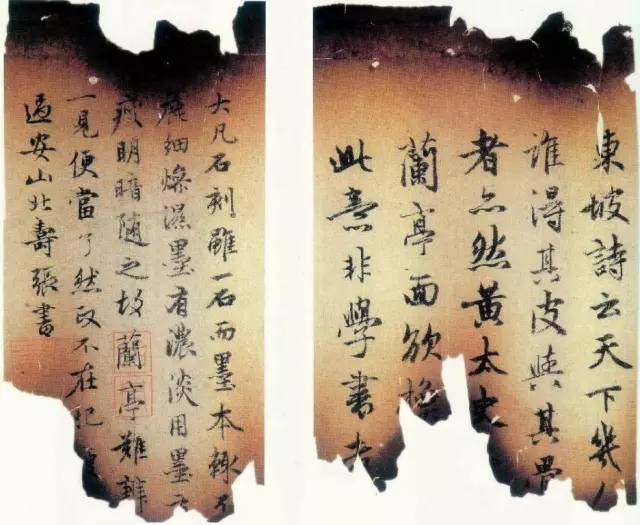 東坡詩云天下幾人
誰得其皮與其骨
者亦然黃太史
蘭亭面欲換
此意非學書者
大凡石刻雖一石而墨本輒不
麄細燥濕墨有濃淡用墨之
瘦明暗隨之故蘭亭難辨
一見便當了然政不在肥
過安山北壽張書